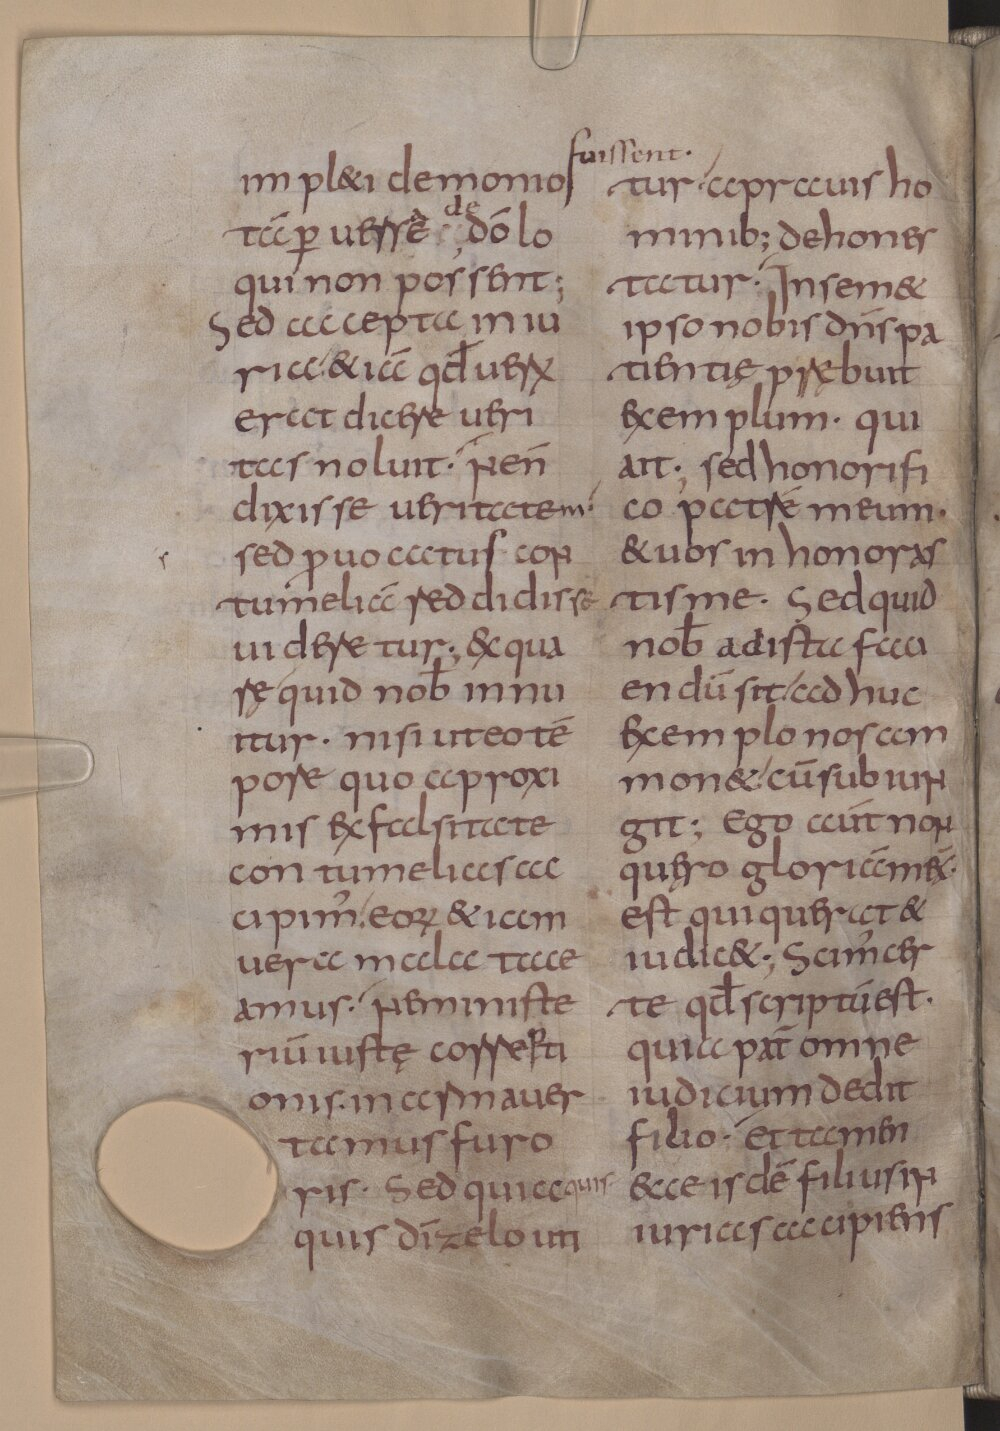 impl&i demonio fuissent·
tā ꝑuersæ de dō lo
qui non possent;
Sed accepta iniu
ria & iā qđ uerū
erat dicere ueri
tas noluit· ñ eñ
dixisse ueritatem·
sed prouocatus con
tumeliā reddidisse
uideretur; Ex qua
re quid nob innu
itur· nisi ut eo tē
pore quo a proxi
mis ex falsitate
contumelias ac
cipim᾽ eoꝝ & iam
uera mala tace
amus· ne ministe
riū iustę correpti
onis· in arma uer
tamus furo
ris· Sed quia quis
quis dī zelo uti
tur a prauis ho
minib; dehones
tatur· In sem&
ipso nobis dñs pa
tientię pręebuit
exemplum· qui
ait; sed honorifi
co patrē meum·
& uos inhonoras
tis me· Sed quid
nob ad ista faci
endū sit adhuc
exemplo nos am
mon& cū subiun
git; Ego aūt non
quęro gloriā meā·
est qui querat &
iudic&; Scim᾽ cer
te qđ scriptū est·
quia pat̄ omne
iudicium dedit
filio· et tamen
ecce isdē filius in
iurias accipiens